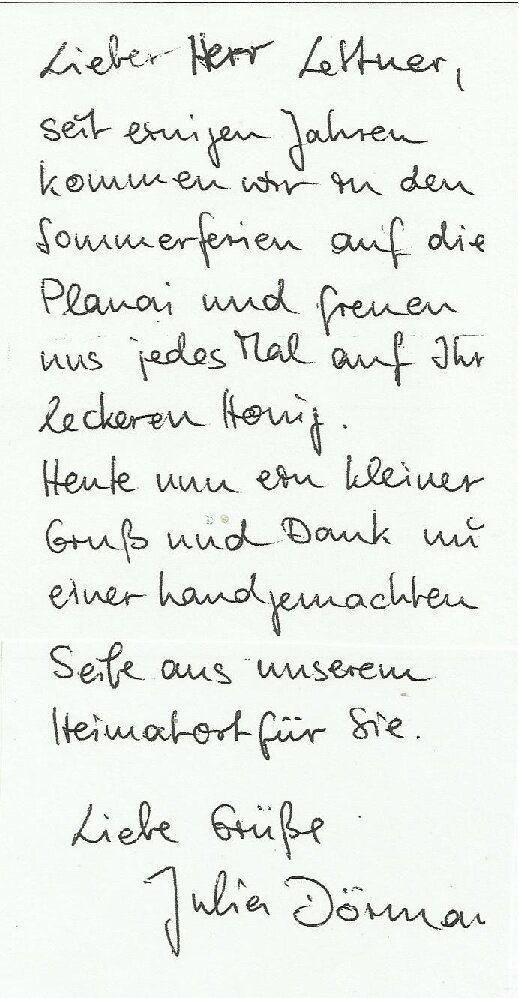 Lieber Herr Lettner,
seit einigen Jahren
kommen wir in den
Sommerferien auf die
Planai und freuen
uns jedes Mal auf Ihr
leckeren Honig.
Heute nun ein kleiner
Gruß und Dank mi
einer handgemachten
Seife aus unserem
Heimatort für Sie.
Liebe Grüße
Julia